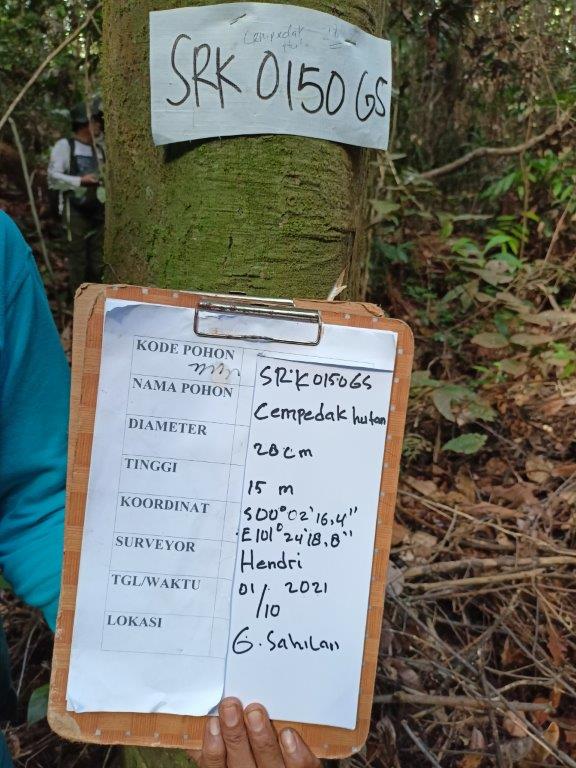 Cempedak
SRK 0150 GS
KODE POHON SRK 0150GS
NAMA POHON Cempedak hutan
DIAMETER 28 cm
TINGGI 15 m
KOORDINAT S00°02'16,4"
E101°24'18,8"
SURVEYOR Hendri
TGL/WAKTU 01/10 2021
LOKASI G. Sahilan